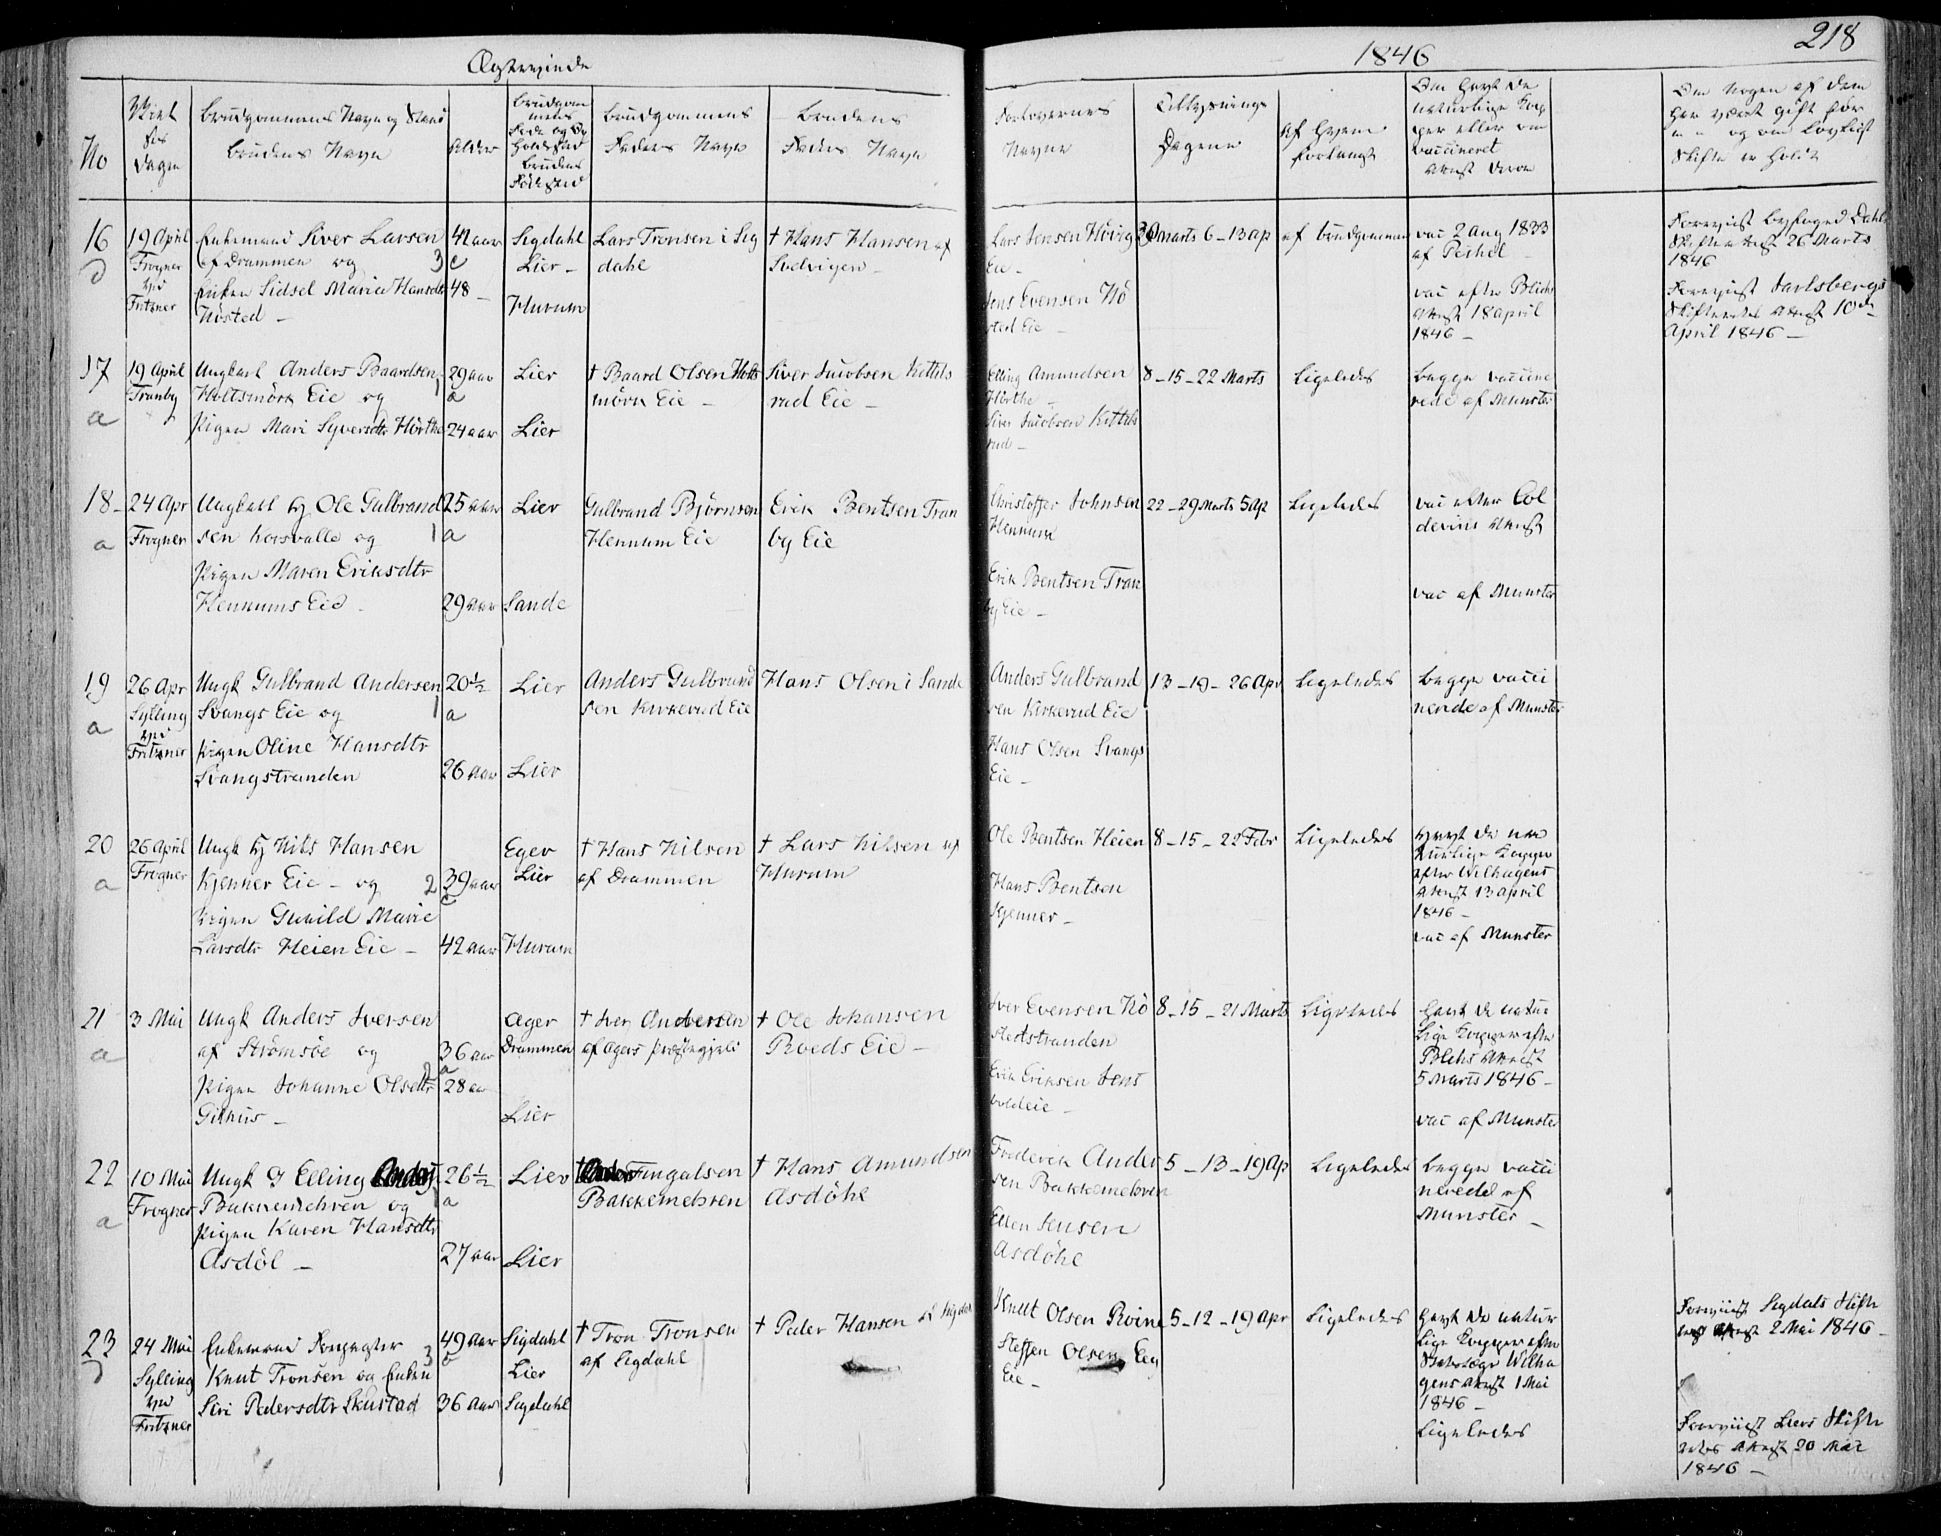 Ægteviede
1846
218
No
Viel
ses
Dagen
Brudgommens Navn og Stand
Brudens Navn
Alder
Brudgom
mens
Føde og
Brudens
Fødested
Brudgommens
Faders Navn
Brudens
Faders Navn
Forlovernes
Navne
Tillysnings
Dagene
Af hvem
forlangt
Om havt de
naturlige Kop
per eller om
vaccineret
Attest derom
Om nogen af dem
har været gift før
og om lovligt
Skifte er holdt
16
d
19 April
Frogner
ved
Fritzner
Enkemand Siver Larsen
af Drammen og 3
Enken Sidsel Maria Hansdtr
Nøsted –
42 aar
c
48 –
Sigdahl
Lier –
Hurum
Lars Tronsen i Sig
dahl
† Hans Hansen af
Sætre
Lars Jensen Høvig
Eie –
Jens Evensen Nø
sted Eie –
Marts 6 – 13 ap
af Brudgommen
vac 2 aug 1833
af Peshel –
vac efter Blichs
Attest 18 april
1846 –
Foreviist Byfoged Dahls
Skifteattest 26 Marts
1846
Foreviist Jarlsbergs
Skifteretts Attest 10de
April 1846 –
17
a
19 April
Tranby
Ungkarl Anders Baardsen 1
Holtsmörk Eie og
Pigen Mari Syversdtr Hörthe
29 aar
a
24 aar
Lier
Lier
† Baard Olsen Holts
mörk Eie –
Siver Jacobsen Kittils
rud Eie –
Elling Amundsen
Hörthe –
Siver Jacobsen Kittils
rud –
8 – 15 – 22 Marts
Ligeledes
begge vaccine
rede af Munster
18 –
a
24 Apr
Frogner
Ungkarl Hj Ole Gulbrand
sen Korsvalle og 1
Pigen Maren Eriksdtr
Hennums Eie –
25 aar
a
29 aar
Lier
Sande
Gulbrand Björnsen
Hennum Eie
Erik Bentsen Tran
by Eie
Christoffer Johnsen
Hennum
Erik Bentsen Tran
by Eie –
22 – 29 Marts 5 Ap
Ligeledes
vac efter Col
devins Attest
vac af Munster
19
a
26 Apr
Sylling
ved
Fritzner
Ungk Gulbrand Andersen
Svangs Eie og 1
Pigen Oline Hansdtr
Svangstranden
20½
a
26 aar
Lier
Lier
Anders Gulbrand
sen Kirkerud Eie
Hans Olsen i Sande
Anders Gulbrand
sen Kirkerud Eie
Hans Olsen Svangs
Eie –
13 – 19 – 26 Apr
Ligeledes
begge vacci
nerede af Munster
20
a
26 April
Frogner
Ungk Hj Nils Hansen
Kjenner Eie – og 2
Pigen Gunild Marie
Larsdtr Heien Eie –
39 aar
c
42 aar
Eger
Lier
Hurum
† Hans Nilsen
af Drammen
† Lars Nilsen af
Hurum
Ole Bentsen Heien
Hans Bentsen
Kjenner –
8 – 15 – 22 Febr
Ligeledes
havt de na
turlige Kopper
efter Wilhagens
Attest 13 april
1846 –
vac af Munster
21
a
3 Mai
Ungk Anders Iversen
af Strømsöe og 2
Pigen Johanne Olsdtr
Gilhus –
36 aar
a
28 aar
Ager
Drammen
Lier
† Iver Andersen
af Agers Præstegjeld
† Ole Johansen
Roeds Eie –
Iver Evensen Nö
stedstranden
Erik Eriksen Jens
voldeie –
8 – 15 – 21 Marts
Ligeledes
havt de natur
lige Kopper efter
Blichs Attest
5 Marts 1846 –
vac af Munster
22
a
10 Mai
Frogner
Ungk G Elling Anders
Bakkemehren og 1
Pigen Karen Hansdtr
Asdöl –
26½
a
27 aar
Lier
Lier
† Fingalsen
Bakkemehren
† Hans Amundsen
Asdöhl
Frederik Ander
sen Bakkemehren
Ellen Jensen
Asdöhl
5 – 13 – 19 Ap
Ligeledes
begge vacci
nerede af
Munster –
23
d
24 Mai
Sylling
ved
Fritzner
Enkemand Forpagter 3
Knut Tronsen og Enken
Siri Pedersdtr Skustad
49 aar
b
36 aar
Sigdahl
Lier
Sigdahl
† Tron Tronsen
af Sigdahl
† Peder Hansen af Sigdahl
Knut Olsen Roine
Steffen Olsen Eeg
Eie –
5 – 12 – 19 Apr
Ligeledes
havt de natur
lige Kopper efter
Wilha
gens Attest 1 Mai
1846 –
Ligeledes
Foreviist Sigdals Skifte
Attest 2 Mai 1846 –
Foreviist Liers Skifte
retts Attest 20 Mai
1846 –